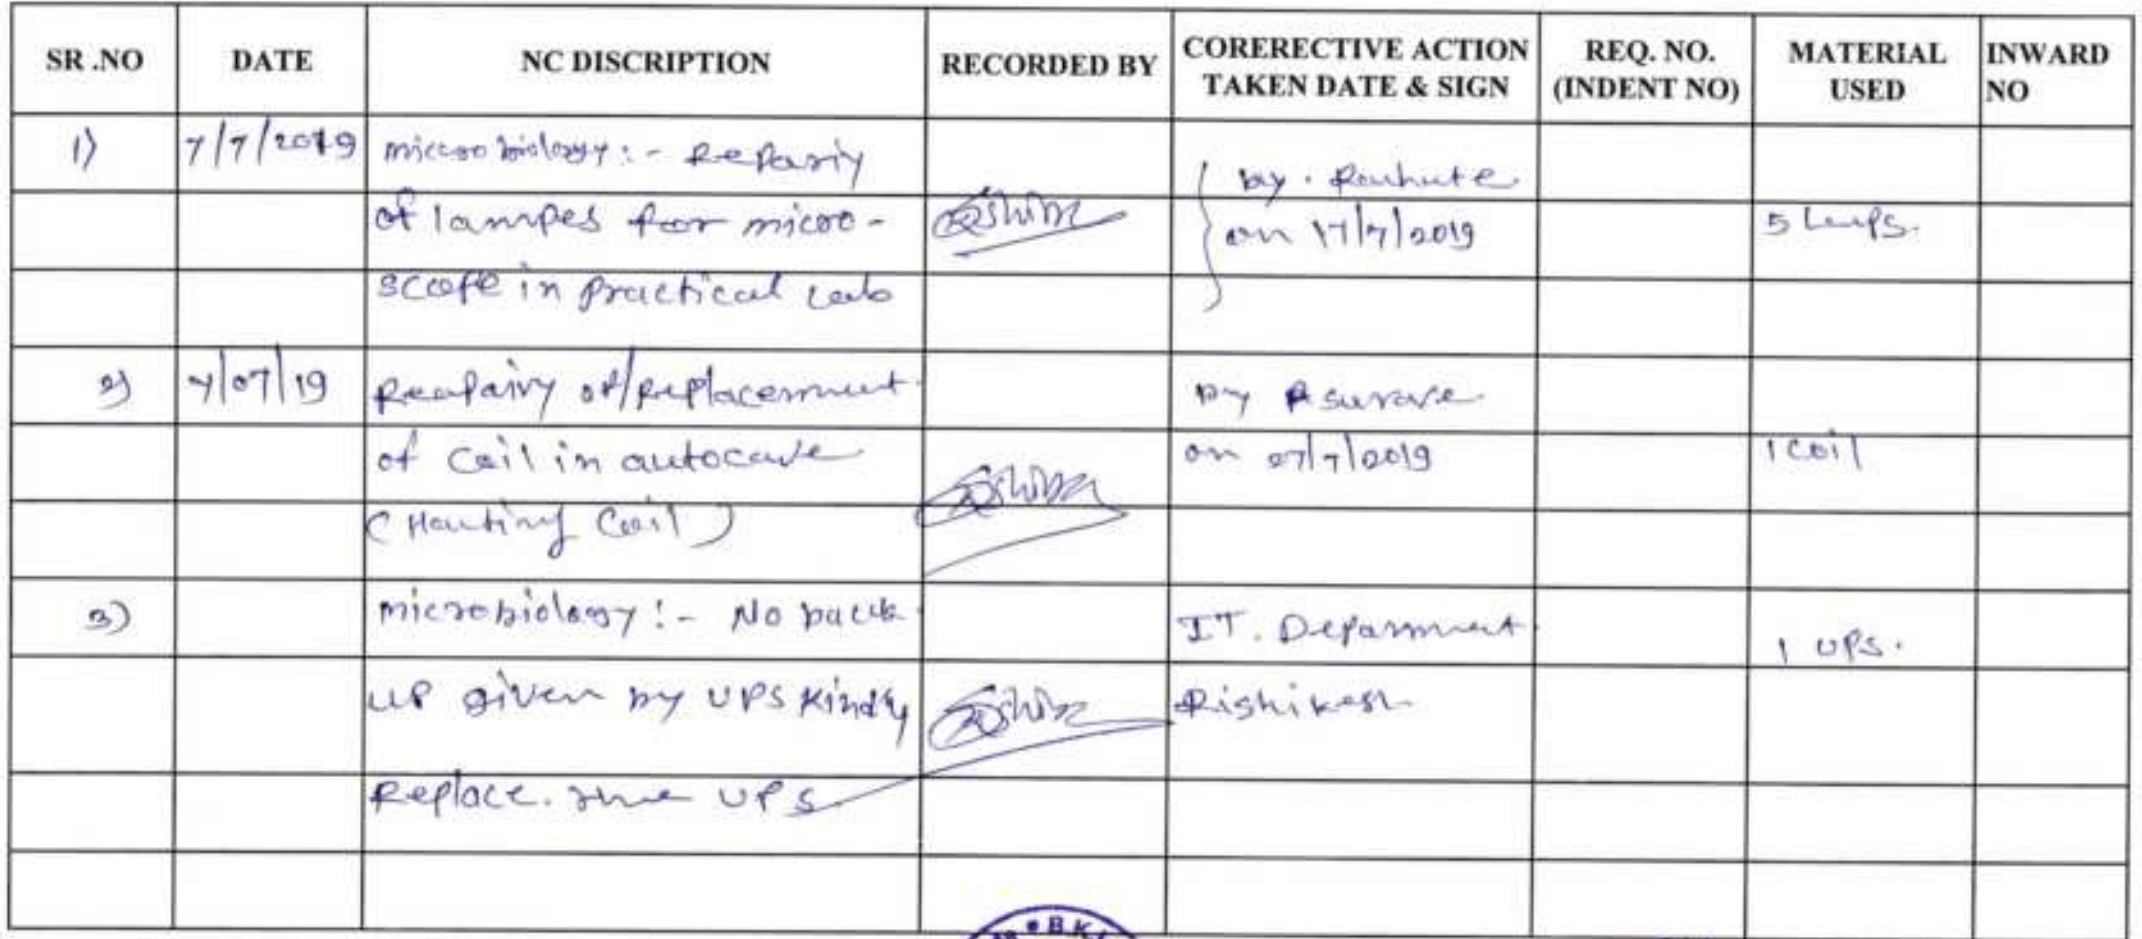 SR .NO DATE NC DISCRIPTION RECORDED BY CORERECTIVE ACTION TAKEN DATE & SIGN REQ. NO. (INDENT NO) MATERIAL USED INWARD NO
1) 7/7/2019 microbiology :- Repariy by .
of lampes for micro- on 17/7/2019 5 lamps.
scope in practical Lab
2) 7/07/19 Reapairy of/Replacement by
of Coil in autocave on 07/7/2019 1 coil
(Heating Coil)
3) microbiology :- No back IT. Deparment 1 UPS.
up given by UPS Kindly Rishikesh
Replace. the UPS
B.K.L